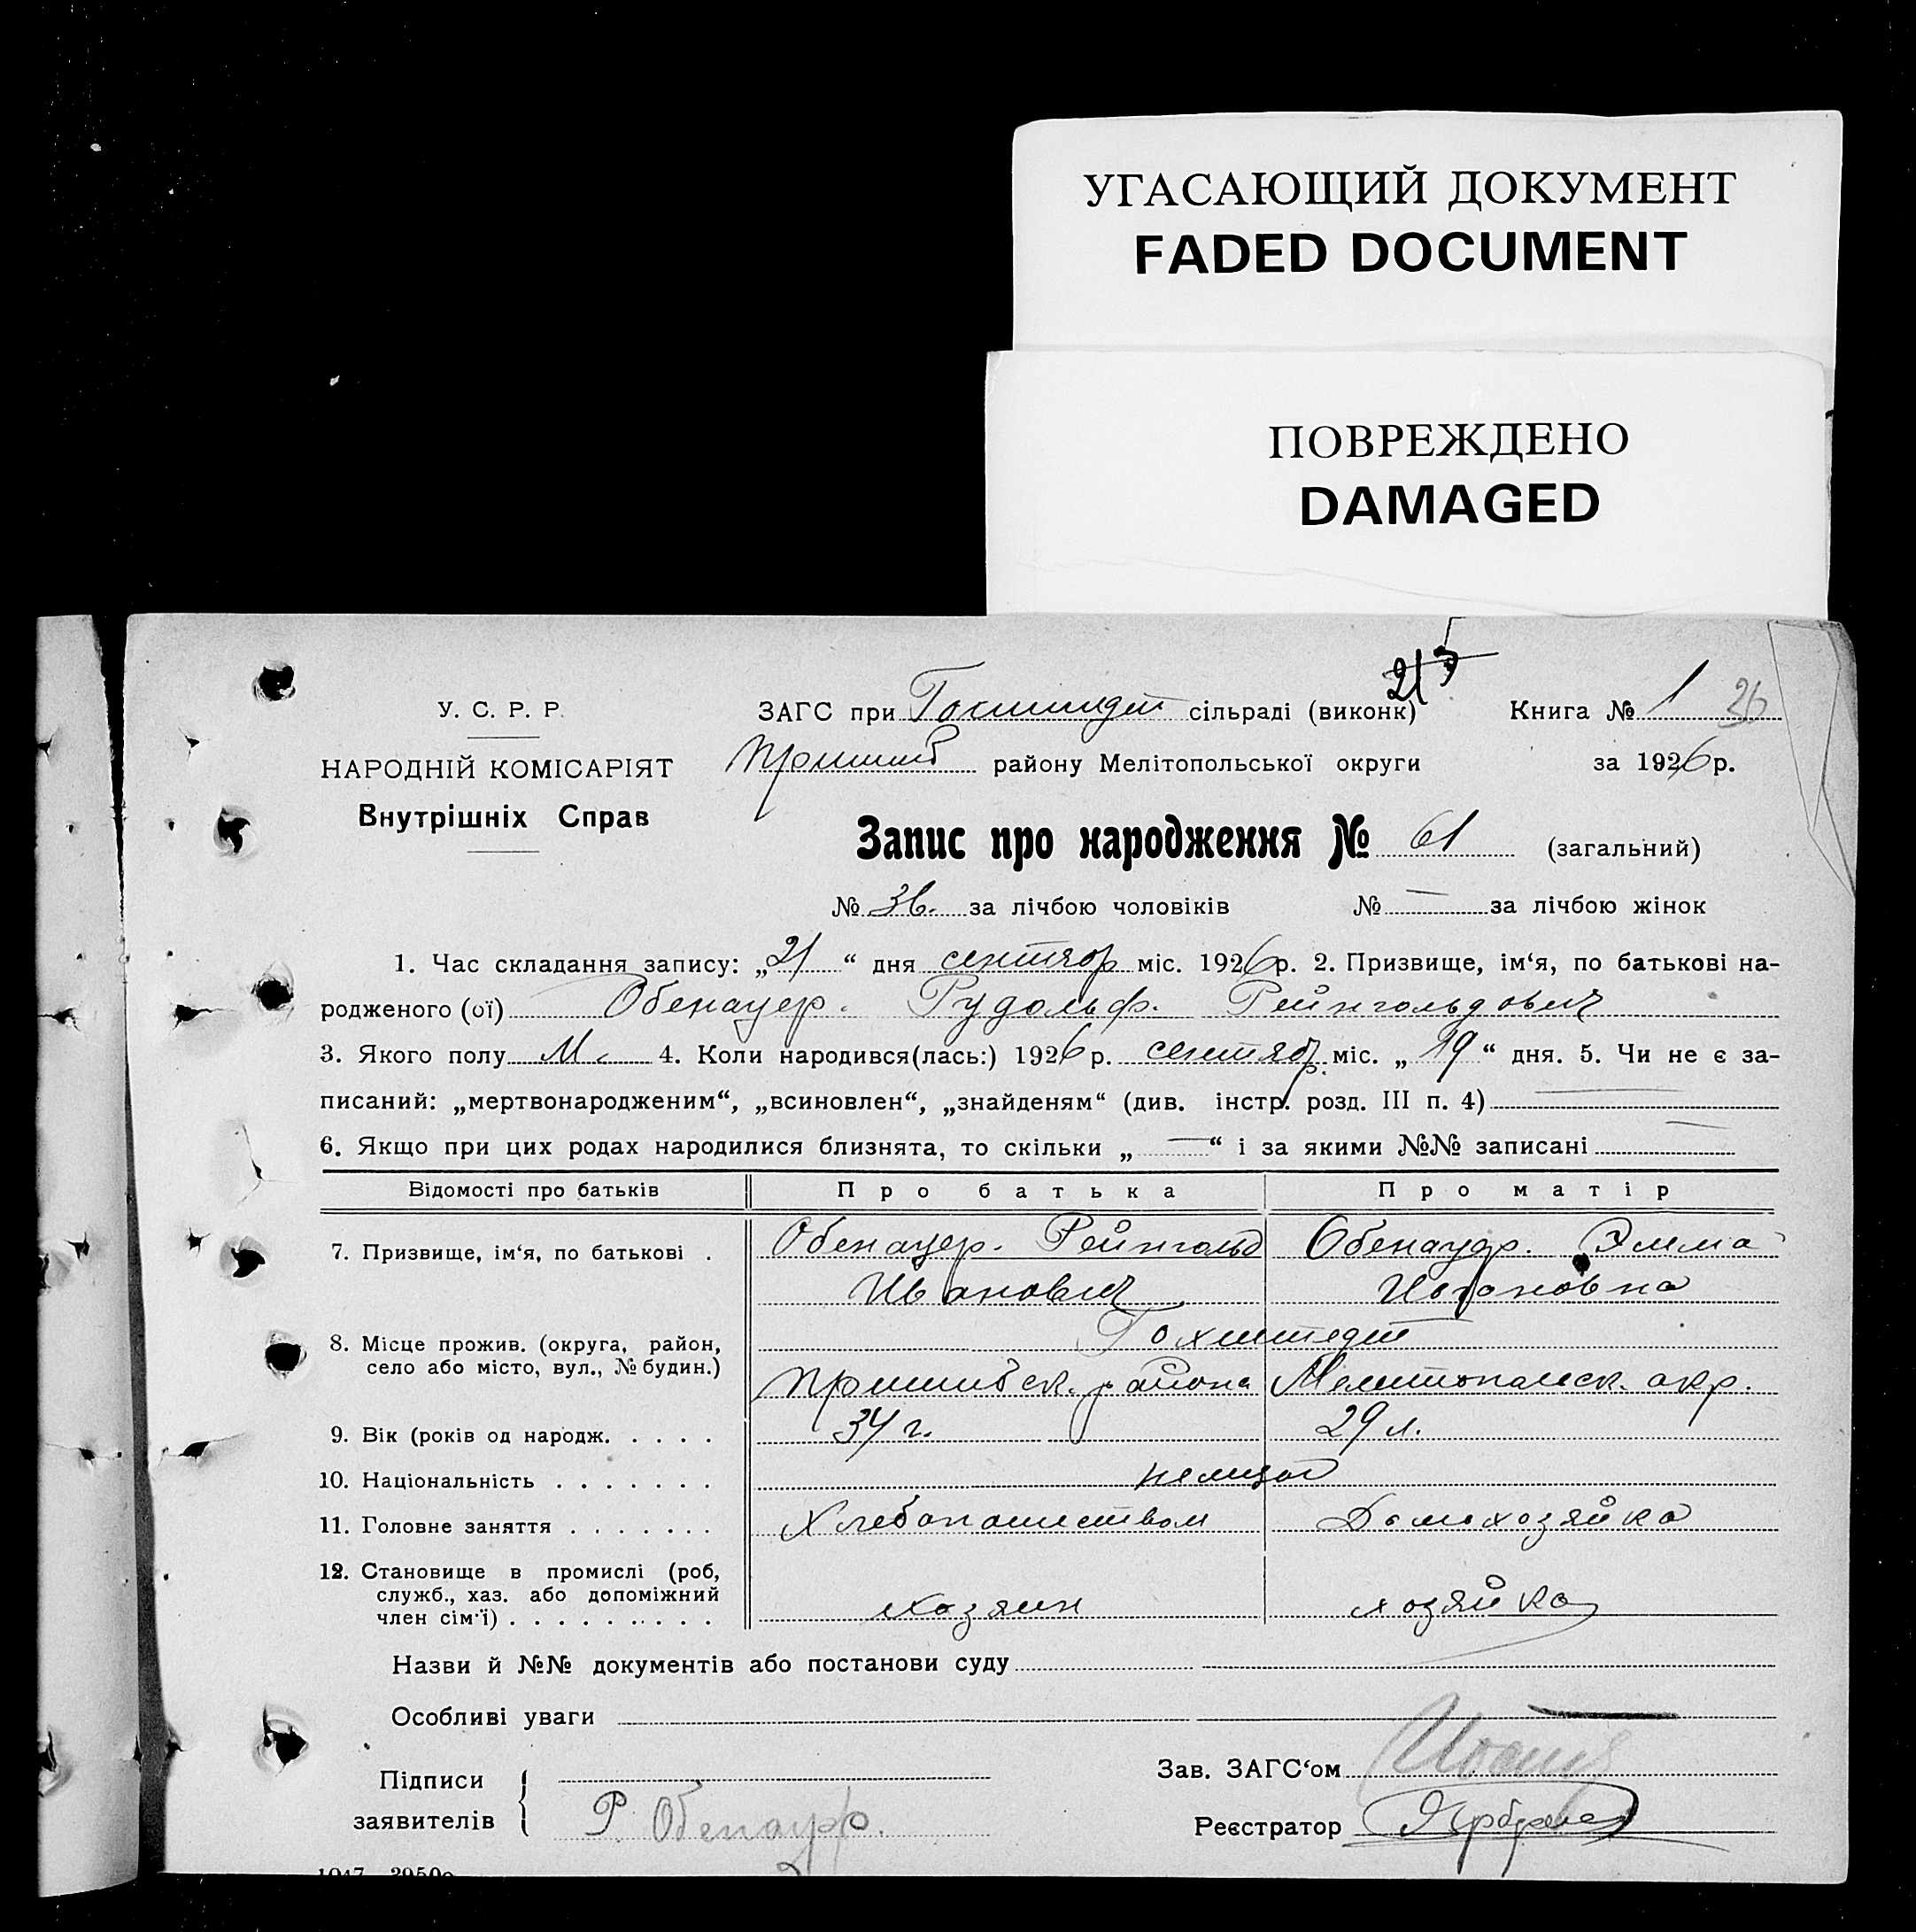 УГАСАЮЩИЙ ДОКУМЕНТ
FADED DOCUMENT
ПОВРЕЖДЕНО
DAMAGED
У. С. Р. Р.
НАРОДНІЙ КОМІСАРІЯТ
Внутрішніх Справ
ЗАГС при Гохштедт сільраді (виконк) Книга № 1 26
Пришиб района Мелітопольської округи за 1926 р.
Запис про народження № 61 (загальний)
№ 36. за лічбою чоловіків № — за лічбою жінок
1. Час складання запису: „21“ дня сентябр міс. 1926 р. 2. Призвище, ім‘я, по батькові на-
родженого (ої) Обенауер. Рудольф. Рейнгольдович
3. Якого полу М. 4. Коли народився(лась:) 1926 р. сентябр. міс. „19“ дня. 5. Чи не є за-
писаний: „мертвонародженим“, „всиновлен“, „знайденям“ (див. інстр. розд. III п. 4) —
6. Якщо при цих родах народилися близнята, то скільки „—“ і за якими №№ записані —
Відомості про батьків Про батька Про матір
7. Призвище, ім‘я, по батькові . Обенауер. Рейнгольд Обенауер. Эмма
Иванович Ивановна
8. Місце прожив. (округа, район, Гохштедт
село або місто, вул., № будин.) Пришибск. района Мелитопольск. окр.
9. Вік (років од народж. . . . . 34 г. 29 л.
10. Національність . . . . . . . немцы
11. Головне заняття . . . . . . . Хлебопашеством Домохозяйка
12. Становище в промислі (роб,
служб., хаз. або допоміжний
член сім‘ї) . . . . . . . . . хозяин хозяйка
Назви й №№ документів або постанови суду
Особливі уваги —
Підписи Зав. ЗАГС‘ом
заявителів Р. Обенауер. Реєстратор